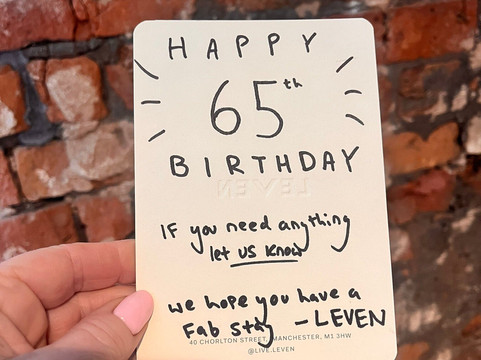 HAPPY
65th
BIRTHDAY
LEVEN
IF you need anything
let us know
we hope you have a
Fab stay - LEVEN
40 CHORLTON STREET, MANCHESTER, M1 3HW
@LIVE.LEVEN